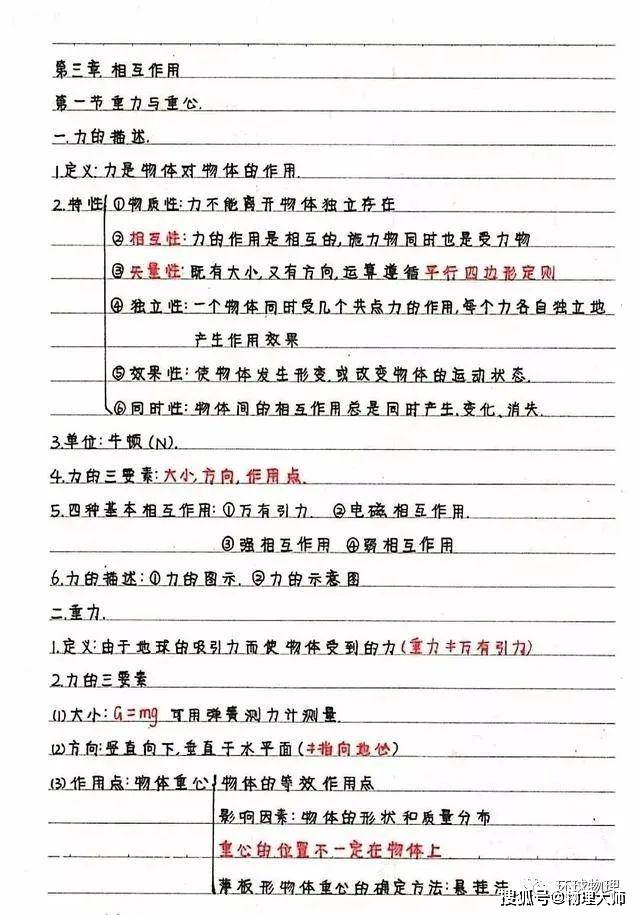 第三章 相互作用
第一节重力与重心.
一.力的描述.
1.定义:力是物体对物体的作用.
2.特性 ①物质性:力不能离开物体独立存在
②相互性:力的作用是相互的,施力物同时也是受力物
③矢量性:既有大小,又有方向,运算遵循平行四边形定则
④独立性:一个物体同时受几个共点力的作用,每个力各自独立地
产生作用效果
⑤效果性:使物体发生形变.或改变物体的运动状态.
⑥同时性:物体间的相互作用总是同时产生.变化、消失.
3.单位:牛顿(N).
4.力的三要素:大小,方向,作用点.
5.四种基本相互作用:①万有引力. ②电磁相互作用.
③强相互作用 ④弱相互作用
6.力的描述:①力的图示. ②力的示意图
二.重力.
1.定义:由于地球的吸引力而使物体受到的力(重力≠万有引力)
2.力的三要素
(1)大小:G=mg 可用弹簧测力计测量.
(2)方向:竖直向下,垂直于水平面(≠指向地心)
(3)作用点:物体重心 物体的等效作用点
影响因素:物体的形状和质量分布
重心的位置不一定在物体上
薄板形物体重心的确定方法:悬挂法
环球物理
搜狐号@物理大师